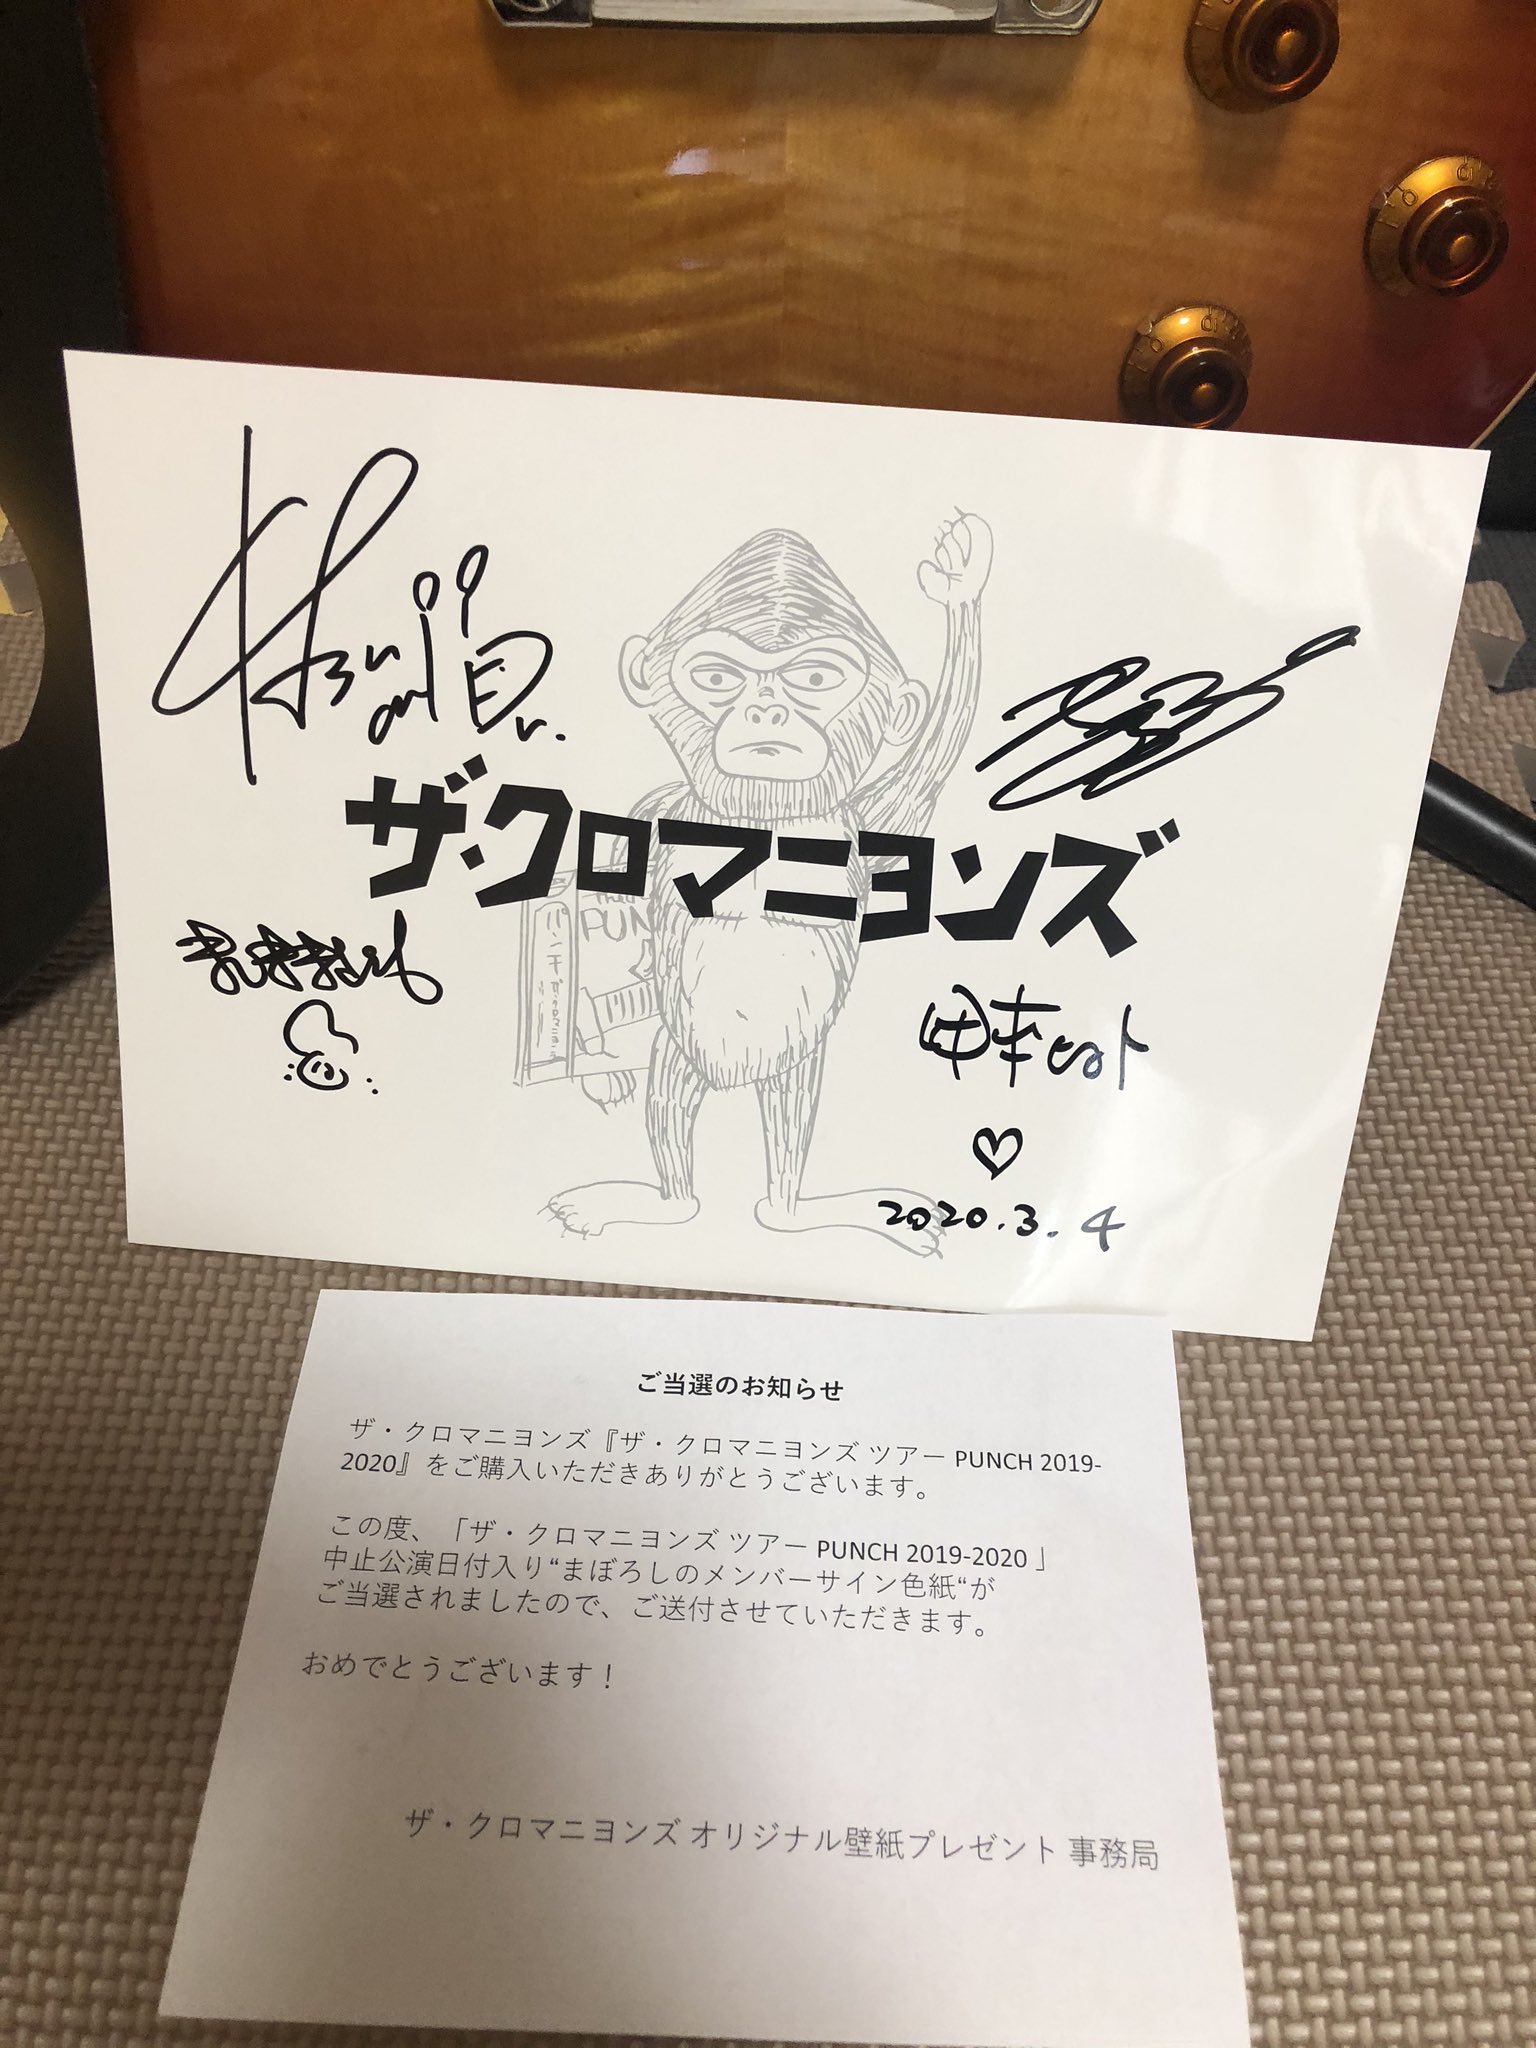 ザ・クロマニヨンズ
PUN
パンチ
甲本ヒロト
2020.3.4
ご当選のお知らせ
ザ・クロマニヨンズ『ザ・クロマニヨンズ ツアー PUNCH 2019-
2020』をご購入いただきありがとうございます。
この度、「ザ・クロマニヨンズ ツアー PUNCH 2019-2020 」
中止公演日付入り“まぼろしのメンバーサイン色紙“が
ご当選されましたので、ご送付させていただきます。
おめでとうございます！
ザ・クロマニヨンズ オリジナル壁紙プレゼント 事務局